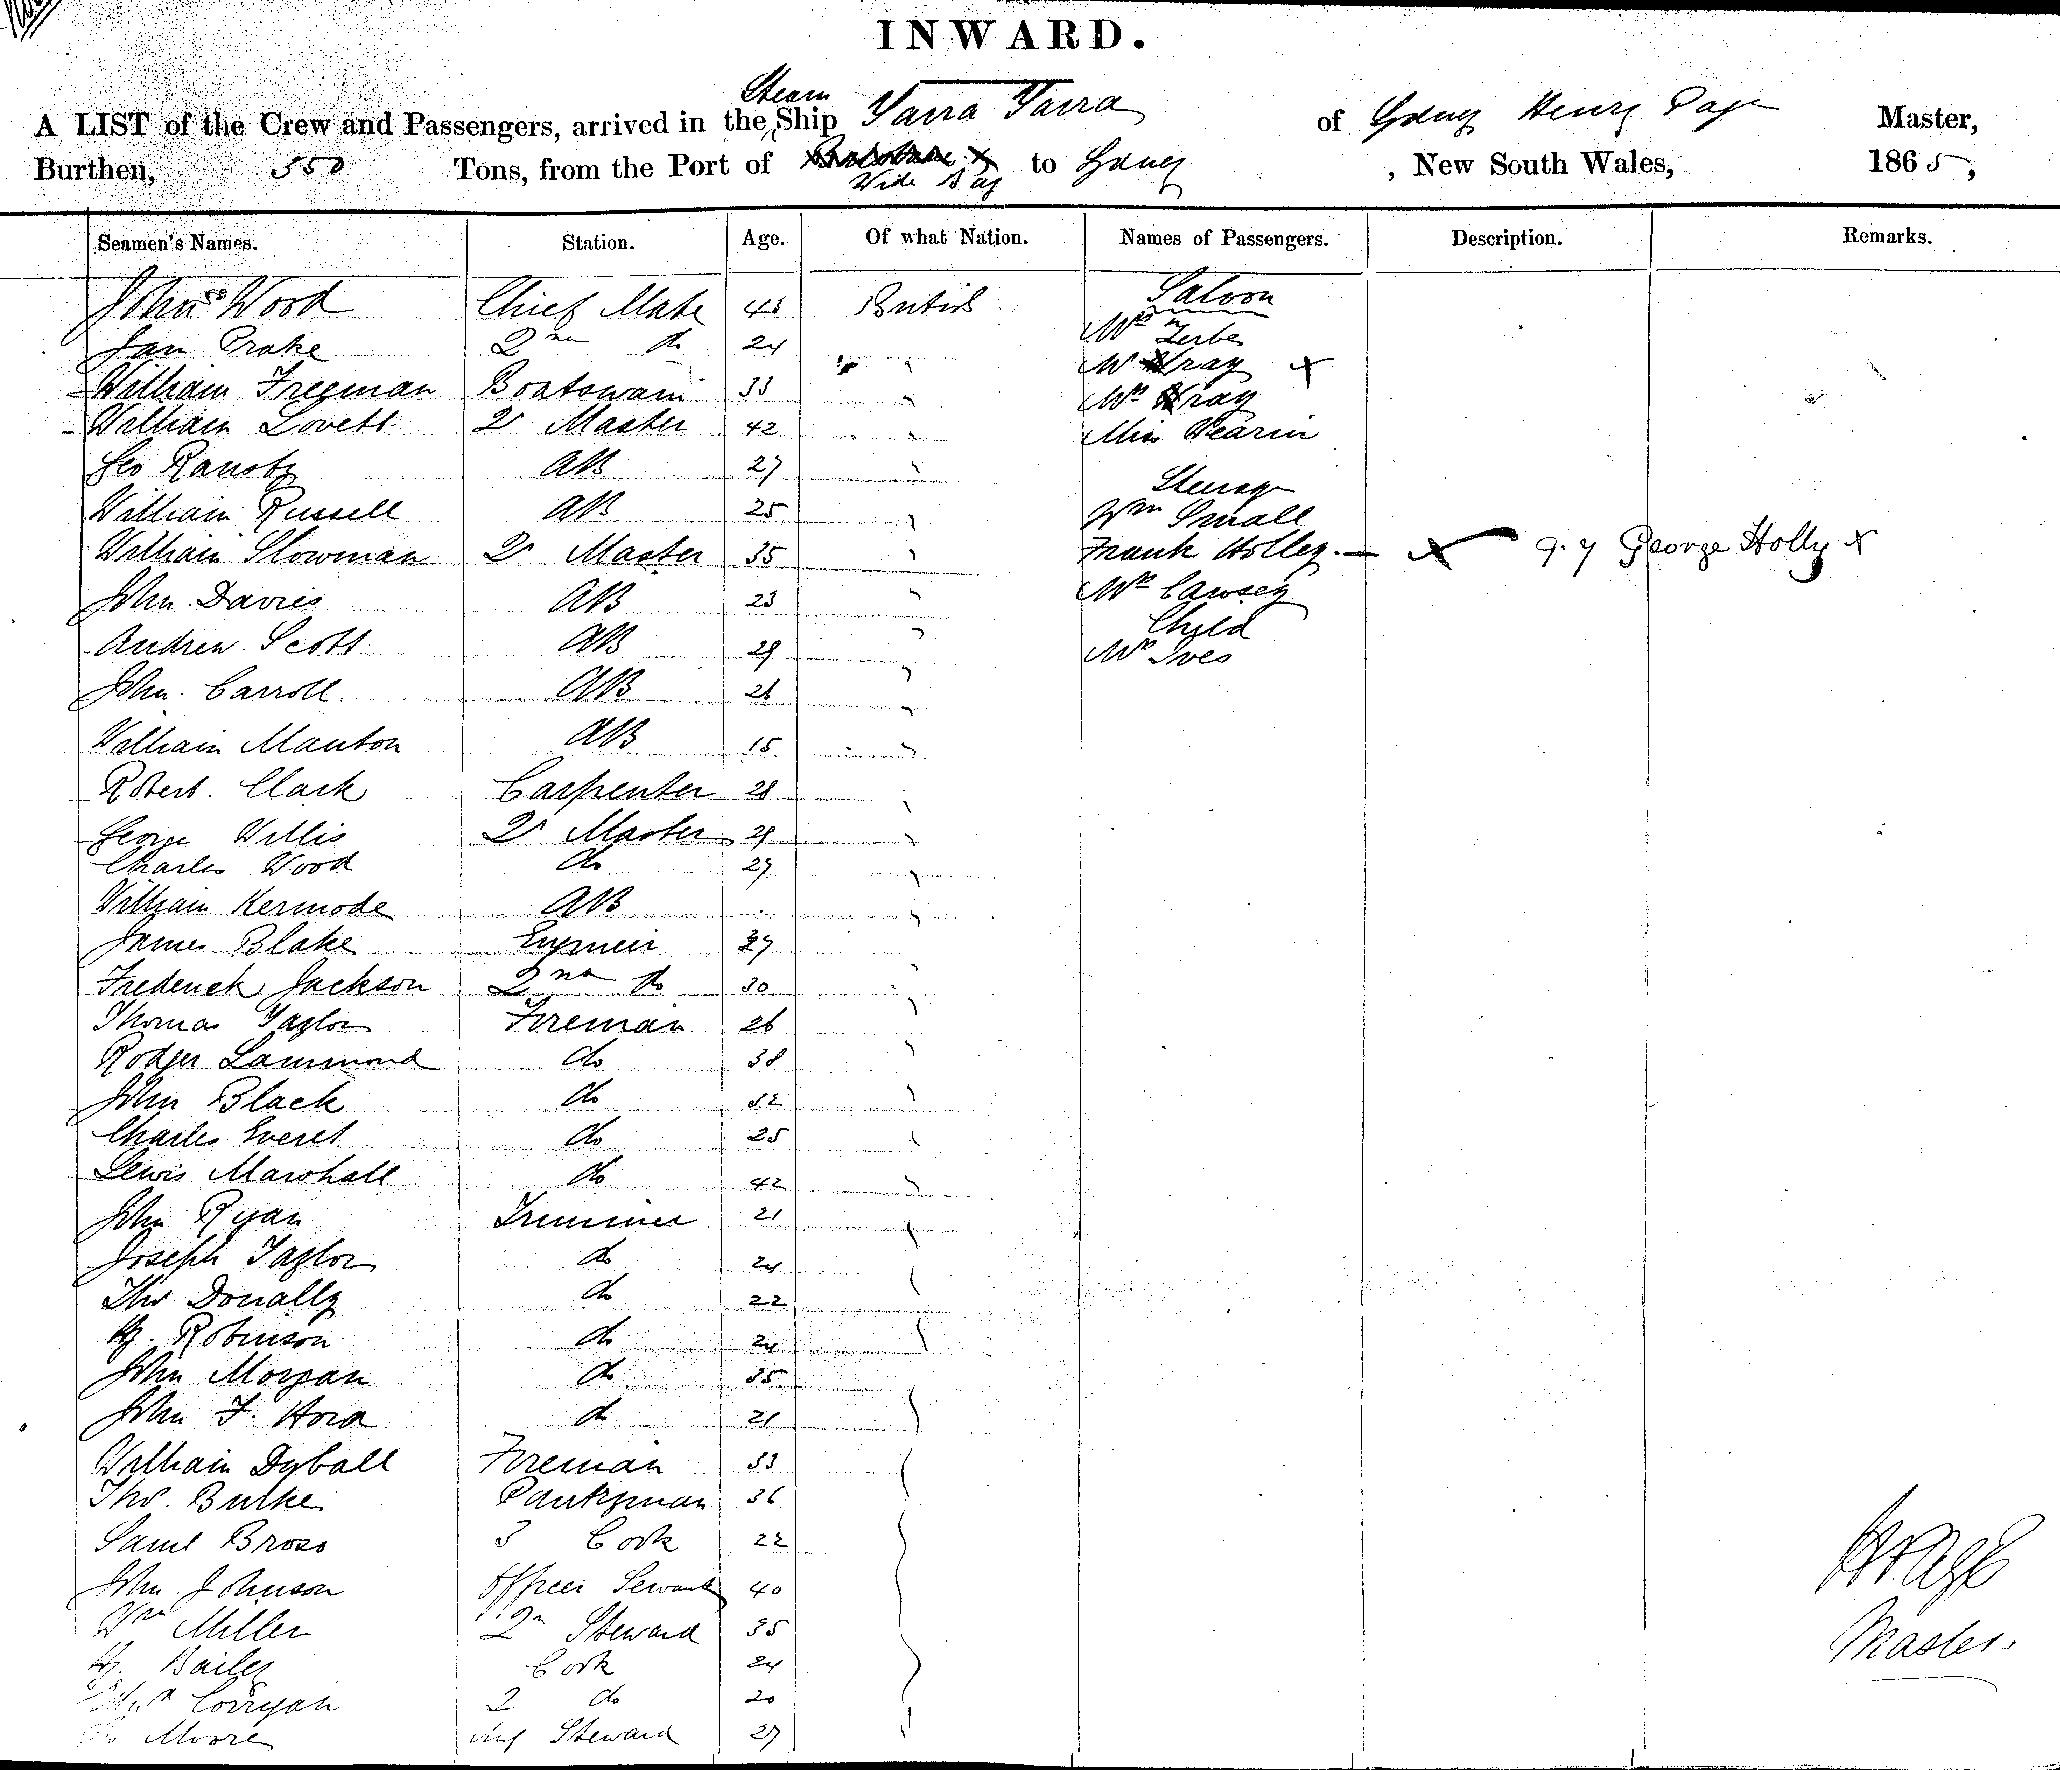 INWARD.
A LIST of the Crew and Passengers, arrived in the Steam Ship Yarra Yarra of Sydney Henry Page Master,
Burthen, 550 Tons, from the Port of Wide Bay to Sydney, New South Wales, 1865,
Seamen's Names. Station. Age. Of what Nation. Names of Passengers. Description. Remarks.
John Wood Chief Mate 43 British Saloon
Jan Prake 2nd do 24 " Mr Zerbe
William Freeman Boatswain 33 " Mr Wray x
William Lovett 2r Master 42 " Mrs Wray
Geo Ransby AB 27 " Miss Pearin
Steerage
William Russell AB 25 " Wm Small
William Slowman 2r Master 35 " Frank Holley — x George Holly x
John Davies AB 23 " Mrs Cawsey
Child
Andrew Scott AB 29 " Mr Ives
John Carroll AB 26 "
William Manton AB 15 "
Robert Clark Carpenter 28 "
George Willis 2r Master 29 "
Charles Wood do 27 "
William Kermode AB "
James Blake Engineer 37
Frederick Jackson 2nd do 30 "
Thomas Taylor Fireman 26 "
Rodger Lammond do 38 "
John Black do 32 "
Charles Everet do 25 "
Lewis Marshall do 42 "
John Ryan Trimmer 21 "
Joseph Taylor do 24
Thos Donally do 22
H. Robinson do 24
John Morgan do 35
John F. Hord do 21
William Dyball Fireman 33
Thos. Burke Pantryman 36
Saml Bross 3 Cook 22
John Johnson Officer Servant 40
Wm Miller 2nd Steward 35
H. Bailey Cook 24
Corrigan 2 do 20
Moore Steward 27
H Page
Master.